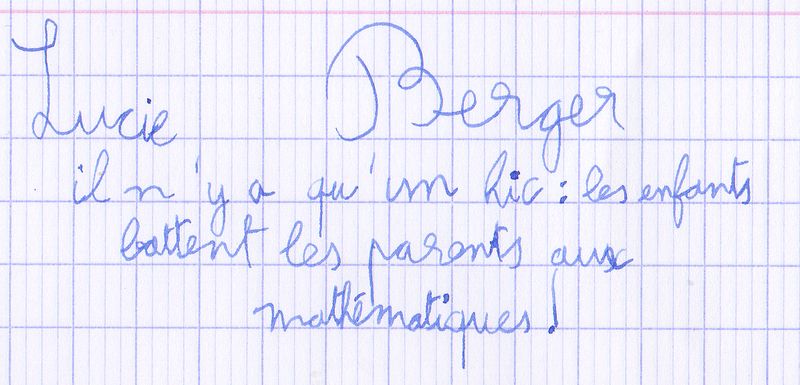 Lucie Berger
il n'y a qu'un hic : les enfants
battent les parents aux
mathématiques !